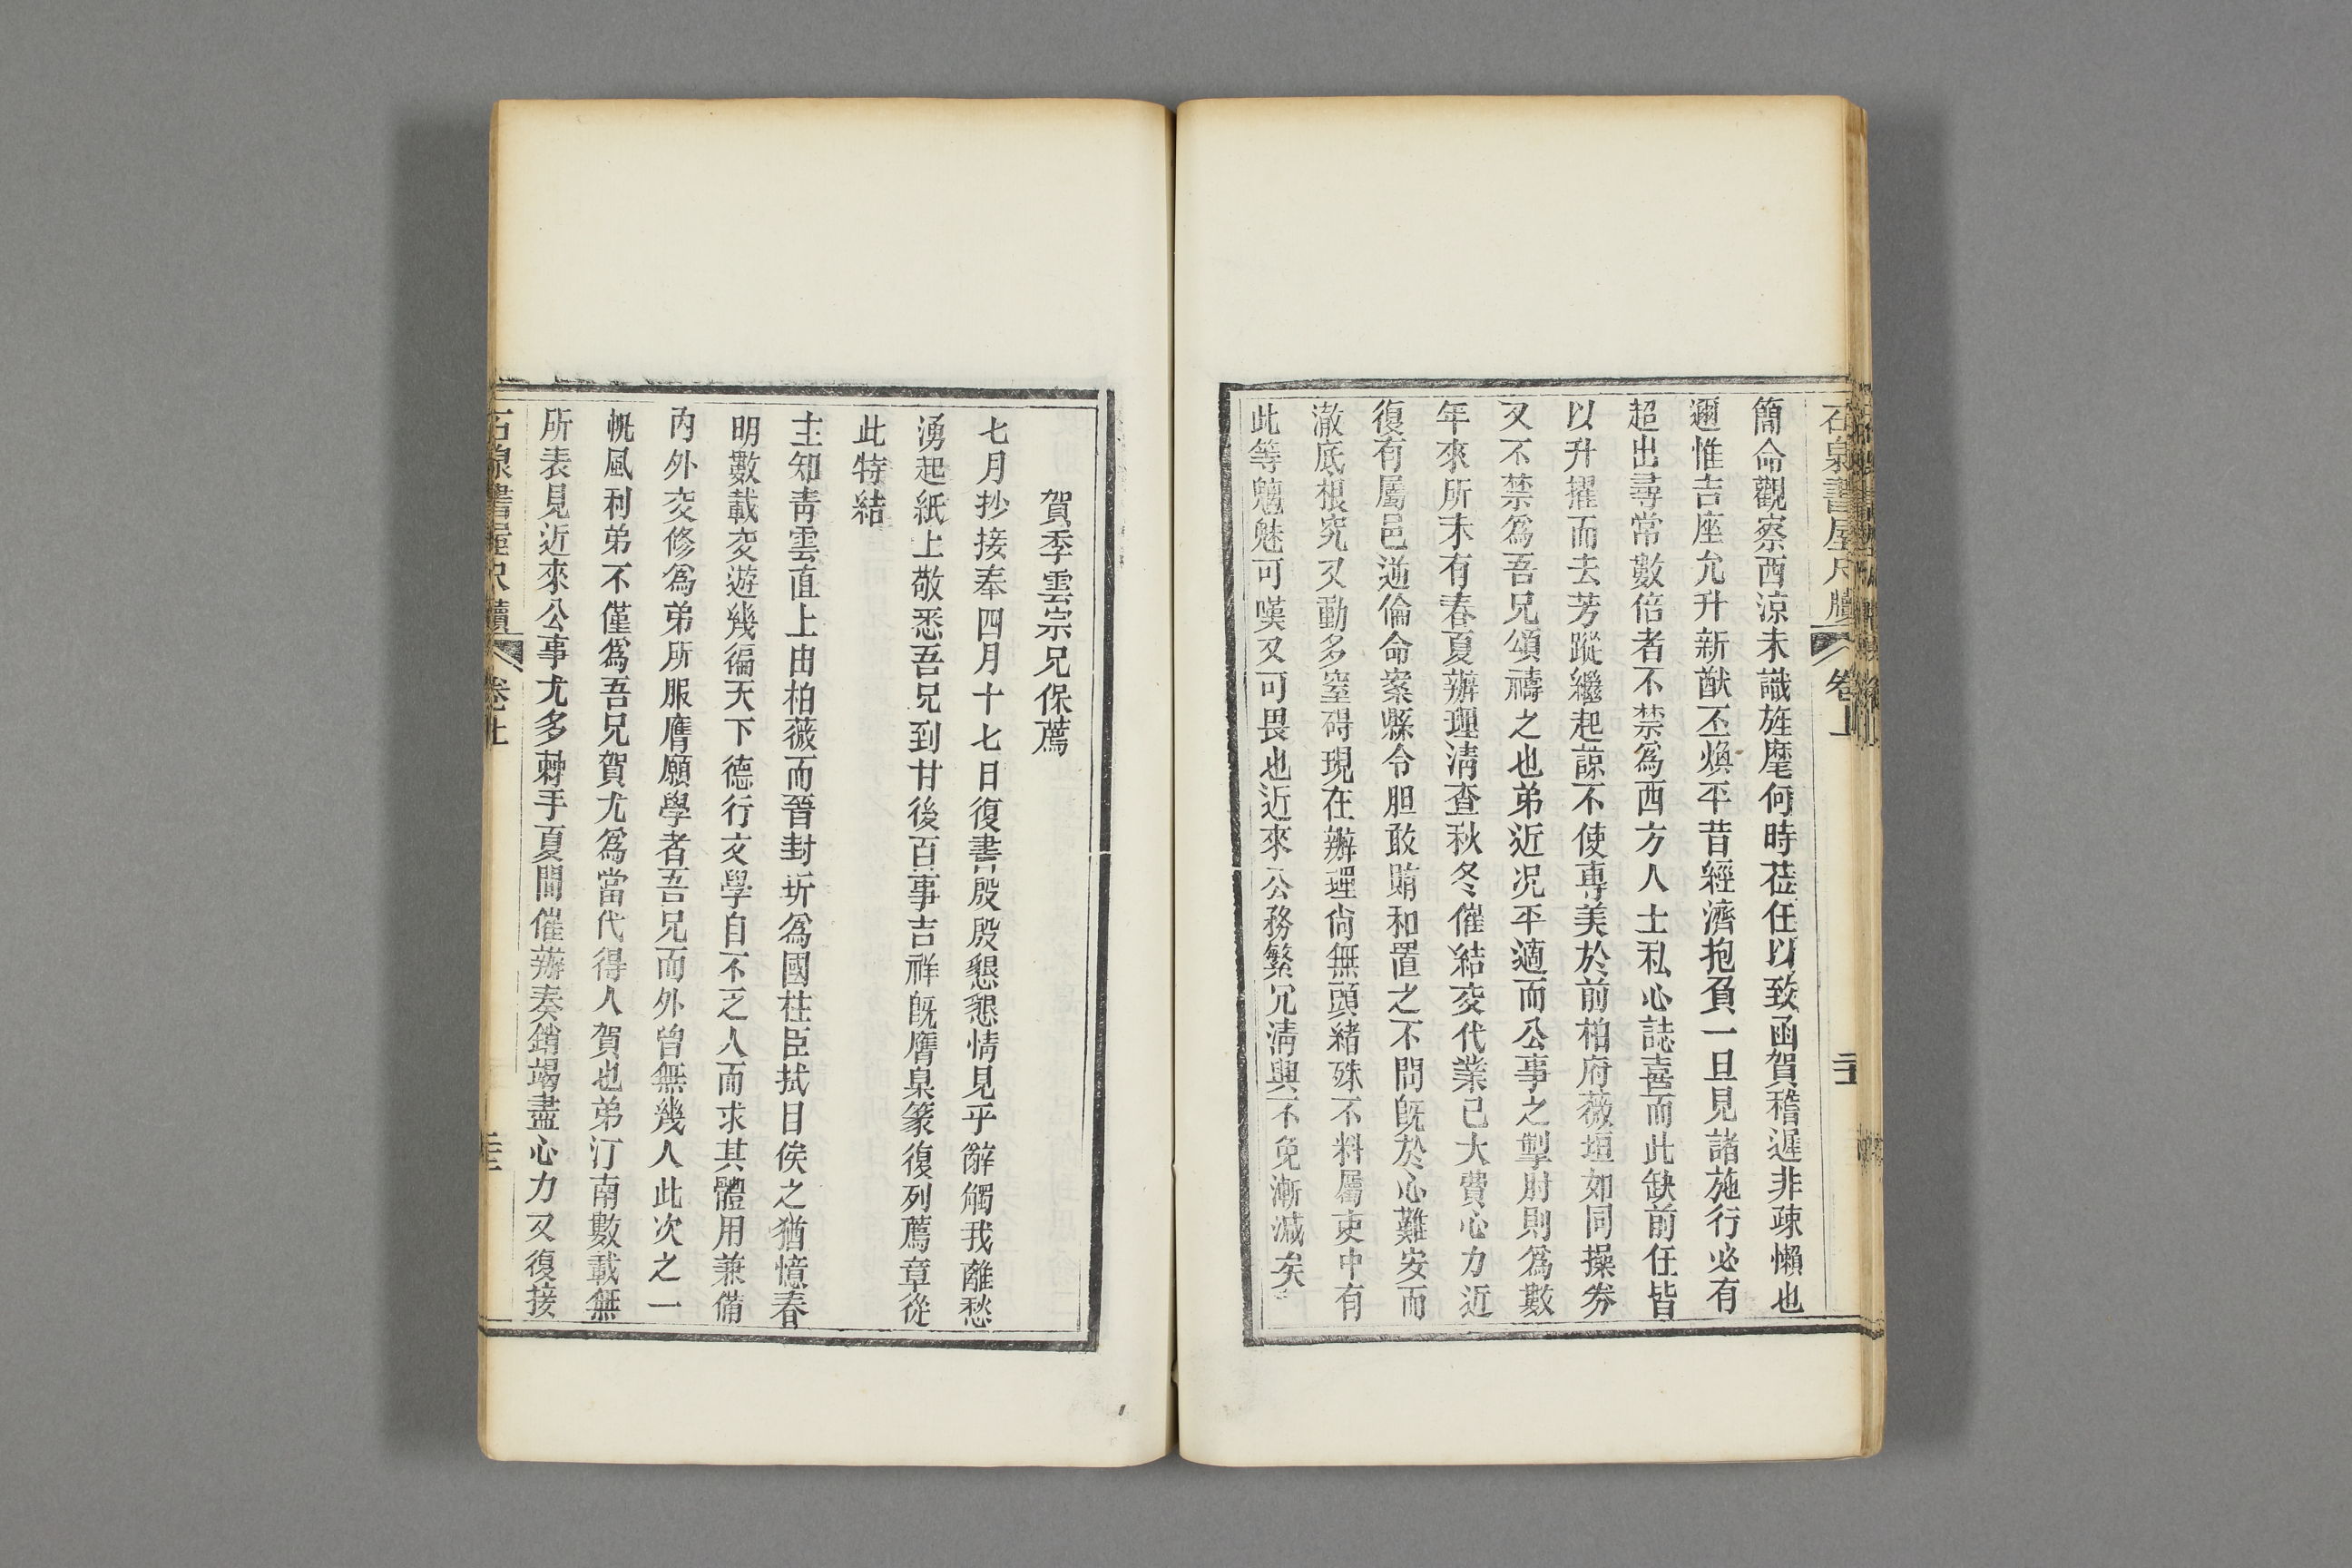 石泉書屋尺牘 卷上 二十一
簡命觀察西涼未識旌麾何時莅任以致函賀稽遲非疎懶也
邇惟吉座允升新猷丕煥平昔經濟抱負一旦見諸施行必有
超出尋常數倍者不禁爲西方人士私心誌喜而此缺前任皆
以升擢而去芳蹤繼起諒不使專美於前柏府薇垣如同操券
又不禁爲吾兄頌禱之也弟近况平適而公事之掣肘則爲數
年來所未有春夏辦理淸查秋冬催結交代業已大費心力近
復有屬邑逆倫命案縣令胆敢賄和置之不問旣於心難安而
澈底根究又動多窒碍現在辦理尙無頭緒殊不料屬吏中有
此等魑魅可嘆又可畏也近來公務繁冗淸興不免漸減矣
賀季雲宗兄保薦
七月抄接奉四月十七日復書殷殷懇懇情見乎辭觸我離愁
湧起紙上敬悉吾兄到甘後百事吉祥旣膺臬篆復列薦章從
此特結
主知靑雲直上由柏薇而晉封圻爲國柱臣拭目俟之猶憶春
明數載交遊幾徧天下德行文學自不乏人而求其體用兼備
內外交修爲弟所服膺願學者吾兄而外曾無幾人此次之一
帆風利弟不僅爲吾兄賀尤爲當代得人賀也弟汀南數載無
所表見近來公事尤多棘手夏間催辦奏銷竭盡心力又復接
石泉書屋尺牘 卷上